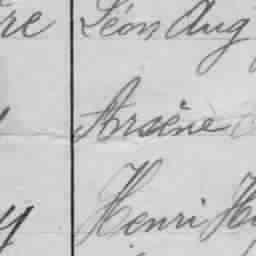 re Léon Aug
Arsène
y Henri Hy